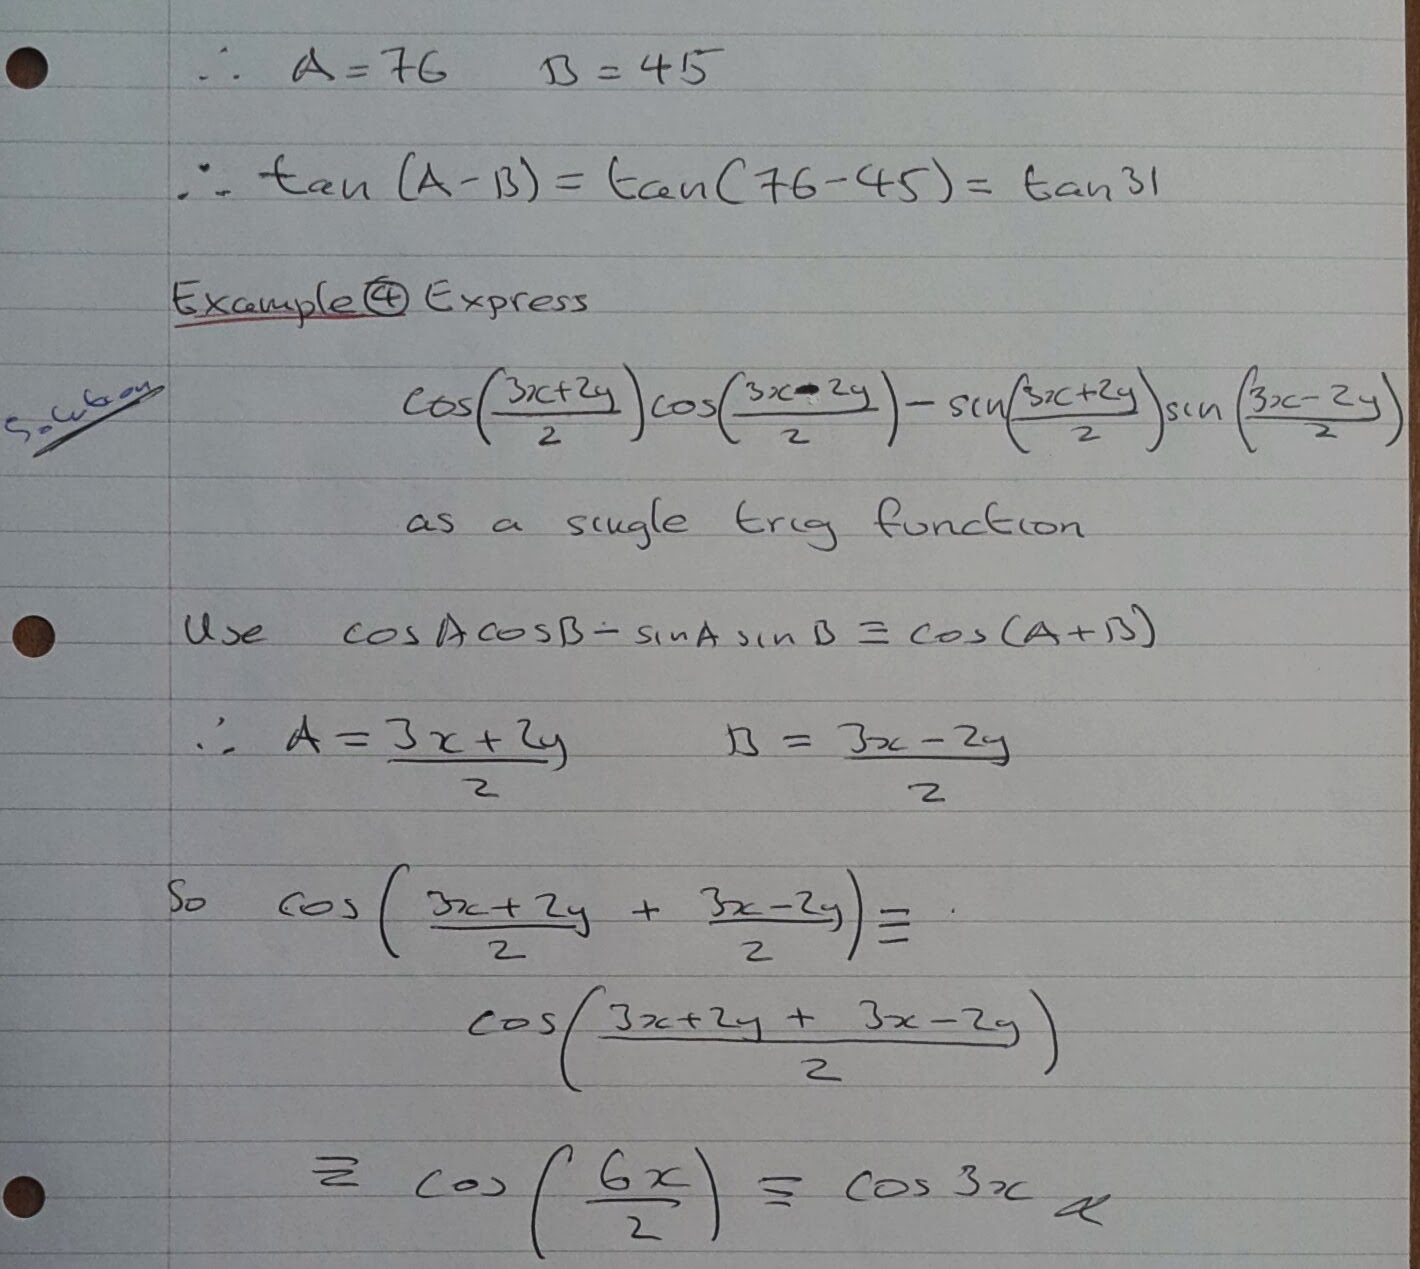 ∴ A = 76 B = 45
∴ tan (A - B) = tan(76 - 45) = tan 31
Example ④ Express
Solution
cos((3x+2y)/2) cos((3x-2y)/2) - sin((3x+2y)/2) sin((3x-2y)/2)
as a single trig function
Use cos A cos B - sin A sin B ≡ cos (A + B)
∴ A = (3x + 2y)/2 B = (3x - 2y)/2
So cos((3x + 2y)/2 + (3x - 2y)/2) ≡
cos((3x + 2y + 3x - 2y)/2)
≡ cos(6x/2) ≡ cos 3x